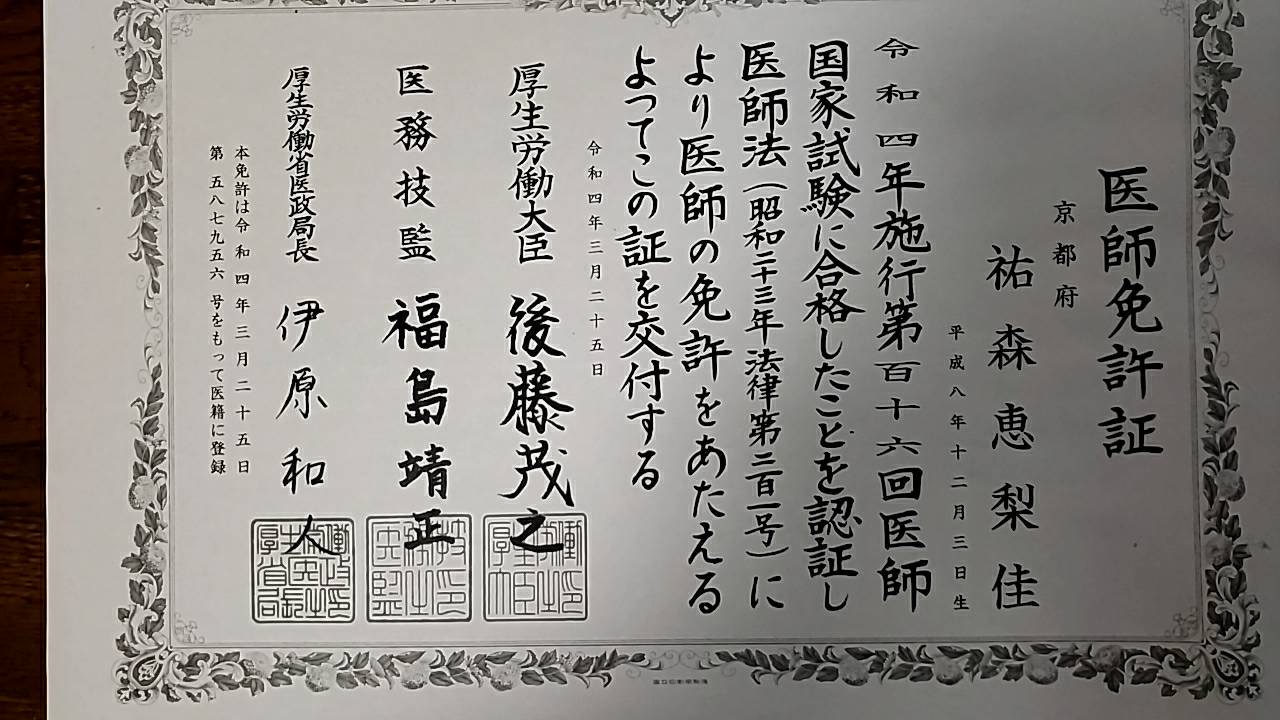 医師免許証
京都府
祐森恵梨佳
平成八年十二月三日生
令和四年施行第百十六回医師
国家試験に合格したことを認証し
医師法(昭和二十三年法律第二百一号)に
より医師の免許をあたえる
よつてこの証を交付する
令和四年三月二十五日
厚生労働大臣 後藤茂之
医務技監 福島靖正
厚生労働省医政局長 伊原和人
本免許は令和四年三月二十五日
第五八七九五六号をもって医籍に登録